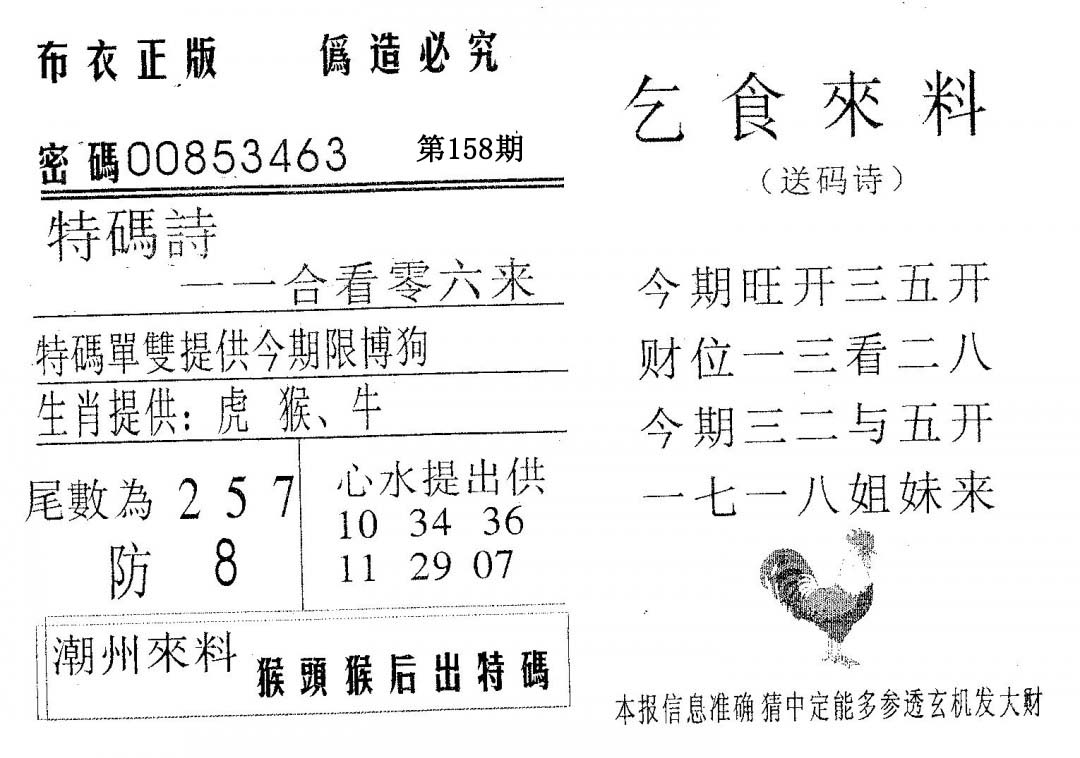 布衣正版 偽造必究
密碼00853463 第158期
特碼詩
一一合看零六来
特碼單雙提供今期限博狗
生肖提供：虎 猴、牛
尾數為 2 5 7
防 8
心水提出供
10 34 36
11 29 07
潮州來料 猴頭猴后出特碼
乞食來料
（送码诗）
今期旺开三五开
财位一三看二八
今期三二与五开
一七一八姐妹来
本报信息准确 猜中定能多参透玄机发大财